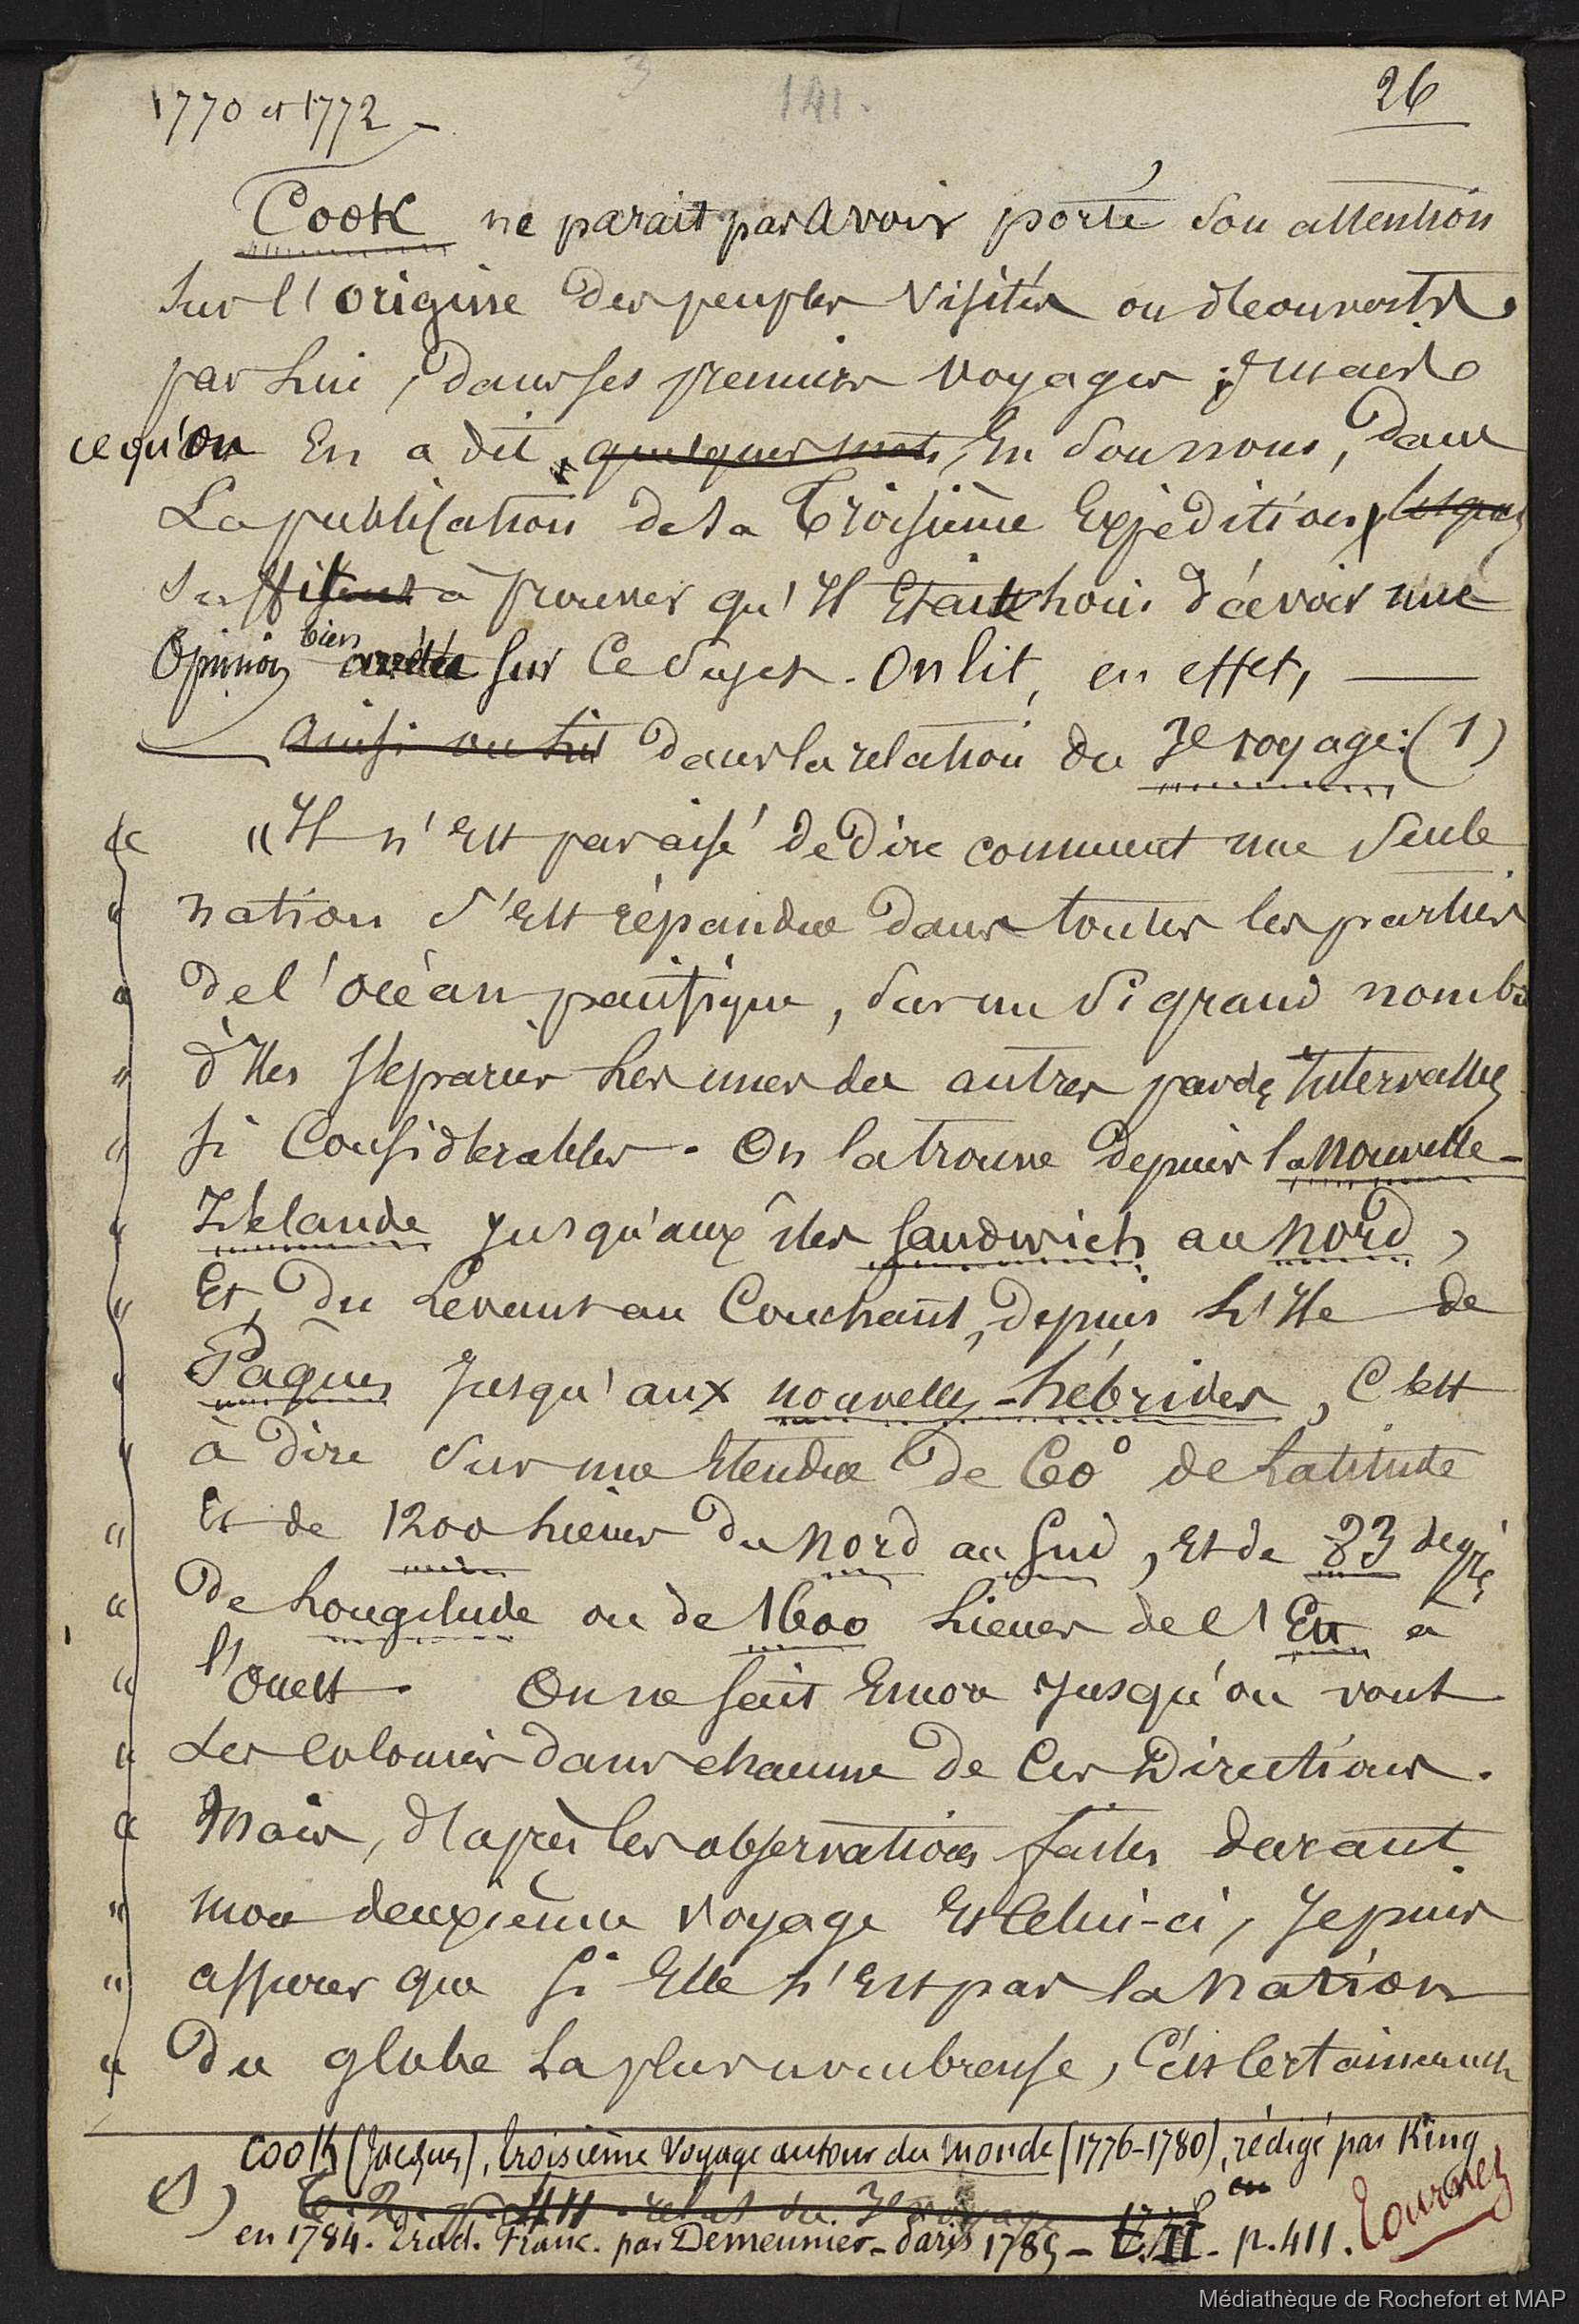 26
141.
1770 et 1772 –
Cook ne parait pas avoir porté son attention
sur l'origine des peuples visités ou découverts
par lui, dans ses premiers voyages ; mais
ce qu'on en a dit, quelques mots, en son nom, dans
La publication de sa Troisième Expédition,
suffisent à prouver qu'il était loin d'avoir une
opinion bien arrêtée sur ce sujet. On lit, en effet, —
ainsi on lit dans la relation du 3e voyage: (1)
« "Il n'est pas aisé de dire comment une seule
" nation s'est répandue dans toutes les parties
" de l'océan pacifique, sur un si grand nombre
" d'îles séparées les unes des autres par des Intervalles
" si Considérables. On la trouve depuis la Nouvelle-
" Zélande jusqu'aux îles Sandwich au nord,
" Et, du Levant au Couchant, depuis l'Ile de
" Pâques jusqu'aux nouvelles-hébrides, C'est
" à dire sur une étendue de 60° de Latitude
" Et de 1200 lieues du nord au Sud, et de 83 degrés
" De Longitude ou de 1600 lieues de l'Est à
" l'Ouest. On ne sait encore jusqu'où vont
" Les colonies dans chacune de ces Directions.
" Mais, d'après les observations faites durant
" mon deuxième voyage et celui-ci, Je puis
" assurer que si Elle n'est pas la Nation
" Du globe La plus nombreuse, C'est certainement
Cook (Jacques), troisième voyage autour du monde (1776-1780), rédigé par King
(1) T. 2. p. 411 relat. du 3e voyage en
en 1784. Trad. Franc. par Demeunier - Paris 1785 - t. II - p. 411. Tournez
Médiathèque de Rochefort et MAP